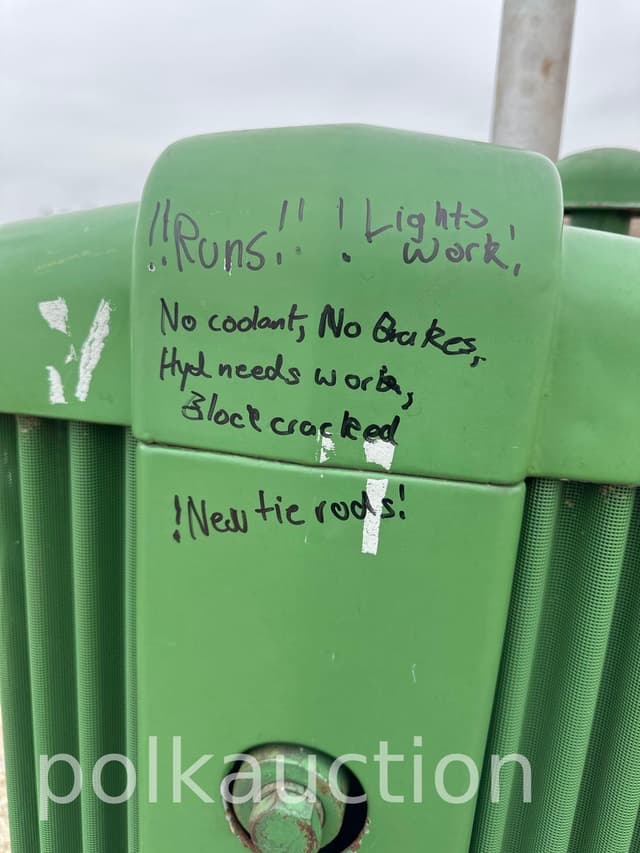 !!Runs!! !Lights
work!
No coolant, No Brakes,
Hyd needs work,
Block cracked
!New tie rods!
polkauction